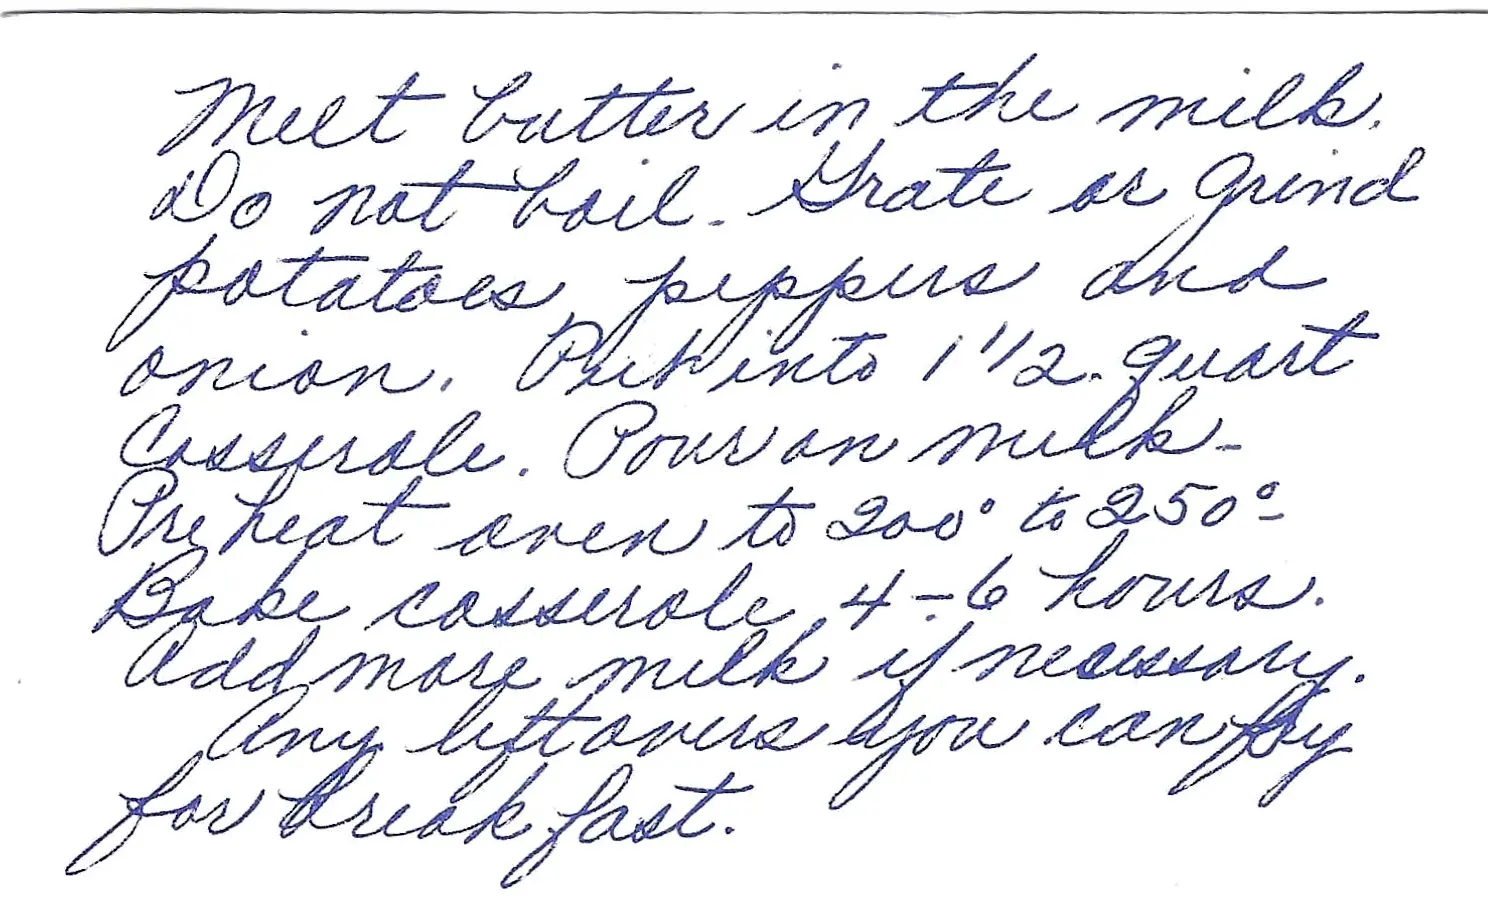 Melt butter in the milk.
Do not boil. Grate or grind
potatoes, peppers and
onion. Put into 1 1/2 quart
Casserole. Pour on milk -
Preheat oven to 200° to 250° -
Bake casserole 4-6 hours.
Add more milk if necessary.
Any leftovers you can fry
for breakfast.